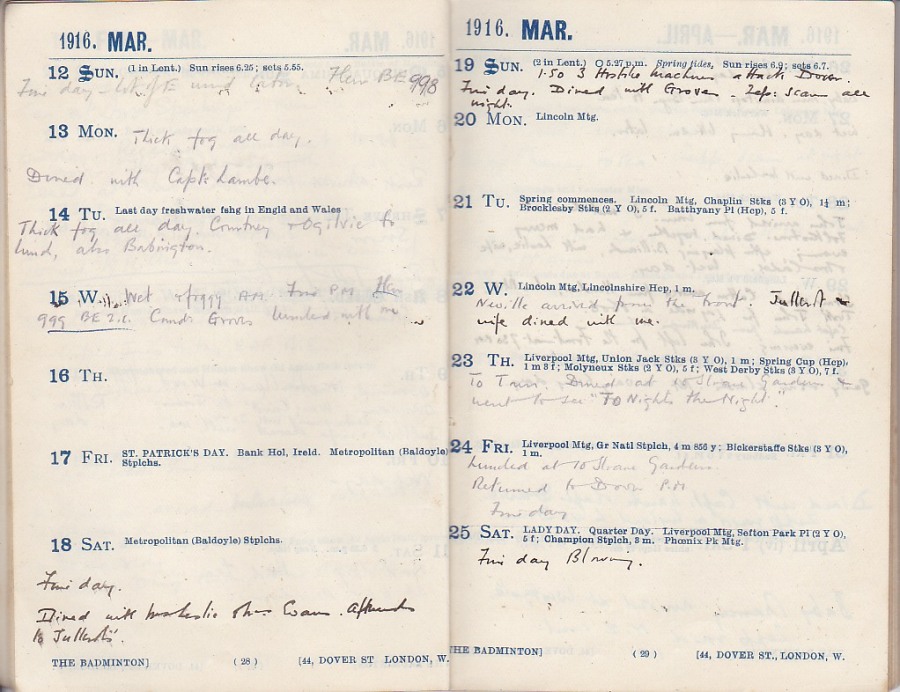 1916. MAR.
12 SUN. (1 in Lent.) Sun rises 6.25; sets 5.55.
Fine day - wind Flew BE 998
13 MON. Thick fog all day.
Dined with Capt. Lambe.
14 TU. Last day freshwater fshg in Engld and Wales
Thick fog all day. Courtney & Ogilvie to
lund, also Babington.
15 W. Wet & foggy AM. Fine PM Flew
999 BE 2.c. Comdr Groves lunched with me
16 TH.
17 FRI. ST. PATRICK'S DAY. Bank Hol, Ireld. Metropolitan (Baldoyle)
Stplchs.
18 SAT. Metropolitan (Baldoyle) Stplchs.
Fine day.
Dined with Evans. Afterwards
to Tullerts'.
THE BADMINTON] (28) [44, DOVER ST LONDON, W.
1916. MAR.
19 SUN. (2 in Lent.) O 5.27 p.m. Spring tides, Sun rises 6.9; sets 6.7.
1.50 3 Hostile machines attack Dover.
Fine day. Dined with Groves. Zep: scare all
night.
20 MON. Lincoln Mtg.
21 TU. Spring commences. Lincoln Mtg, Chaplin Stks (3 Y O), 1¼ m;
Brocklesby Stks (2 Y O), 5 f. Batthyany Pl (Hcp), 5 f.
22 W. Lincoln Mtg, Lincolnshire Hcp, 1 m.
Neville arrived from the front. Tullert &
wife dined with me.
23 TH. Liverpool Mtg, Union Jack Stks (3 Y O), 1 m; Spring Cup (Hcp),
1 m 3 f; Molyneux Stks (2 Y O), 5 f; West Derby Stks (3 Y O), 7 f.
To Town. Dined at 10 Sloane Gardens &
went to see "To Nights the Night".
24 FRI. Liverpool Mtg, Gr Natl Stplch, 4 m 856 y; Bickerstaffe Stks (3 Y O),
1 m.
Lunched at 10 Sloane Gardens.
Returned to Dover P.M
Fine day
25 SAT. LADY DAY. Quarter Day. Liverpool Mtg, Sefton Park Pl (2 Y O),
5 f; Champion Stplch, 3 m. Phœnix Pk Mtg.
Fine day Blowing.
THE BADMINTON] (29) [44, DOVER ST., LONDON, W.